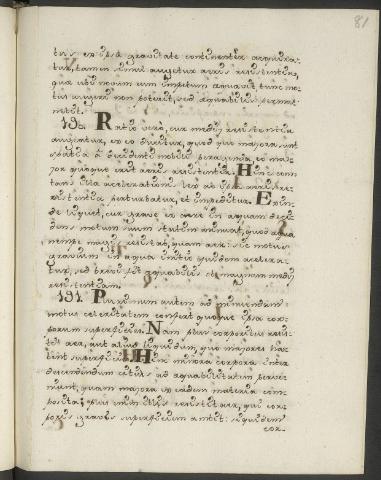 81
tus ex ipsa gravitate continenter acquira-
tur, tamen simul augetur aeris resistentia,
quae ubi novum eum impetum aquavit tunc mo-
tus augeri non poterit, sed aquabilis perma-
nebit.
190. Ratio vero, cur medii resistentia
augeatur, ex eo ducitur, quod quo majora sunt
spatia a decidenti mobili peragenda, eo ma-
jor quoque erit aeris resistentia. Hinc cons-
tans illa acceleratio ab aeris re-
sistentia perturbatur, et impeditur. Exin-
de liquet, cur grave ex aere in aquam deci-
dens motum suum statim minuat, quod aqua
nempe magis resistat, quam aer: sic motus
gravium in aqua initio quidem accelera-
tur, sed brevi fit aquabilis ob magnam medii
resistentiam.
191. Plurimum autem ad minuendam
motus celeritatem confert quoque ipsa cor-
porum superficies. Nam plus corporibus resis-
tet aer, aut aliud liquidum, quo majores ha-
bent superficies. Hinc minora corpora inter
descendendum citius ad aquabilitatem perve-
niunt, quam majora ex eadem materia com-
posita; plus enim illis resistit aer, qui cor-
poris gravis superficiem ambit: siquidem
cor-